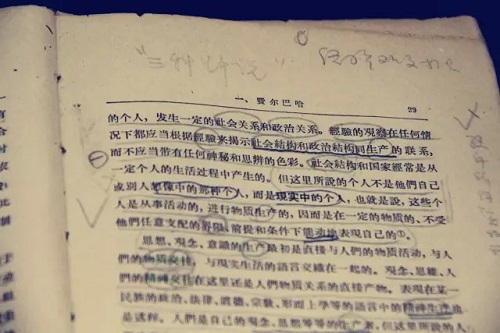 "三种
一、費尔巴哈
29
的个人，发生一定的社会关系和政治关系。經驗的观察在任何情
况下都应当根据經驗来揭示社会結构和政治結构同生产的联系，
而不应当带有任何神秘和思辨的色彩。社会結构和国家經常是从
一定个人的生活过程中产生的。但这里所說的个人不是他們自己
或別人想像中的那种个人，而是現实中的个人，也就是說，这些个
人是从事活动的，进行物质生产的，因而是在一定的物质的、不受
他們任意支配的界限、前提和条件下能动地表現自己的①。
思想、观念、意識的生产最初是直接与人們的物质活动，与人
們的物质交往，与現实生活的語言交織在一起的。观念、思維、人
們的精神交往在这里还是人們物质关系的直接产物。表現在某一
民族的政治、法律、道德、宗教、形而上学等的語言中的精神生产也
是这样。人們是自己的观念、思想等等的生产者，但这里所說的人